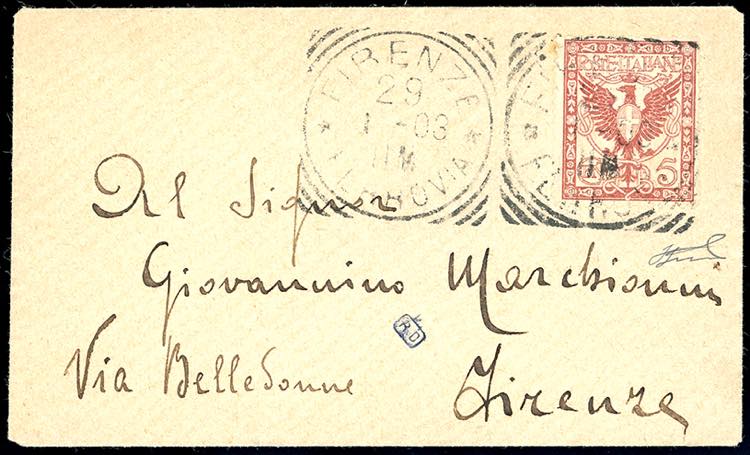 FIRENZE
29
1 -03
11 M
FERROVIA
POSTE ITALIANE
5
11 M
Al Signor
Giovannino Marchionni
Via Belledonne
Firenze